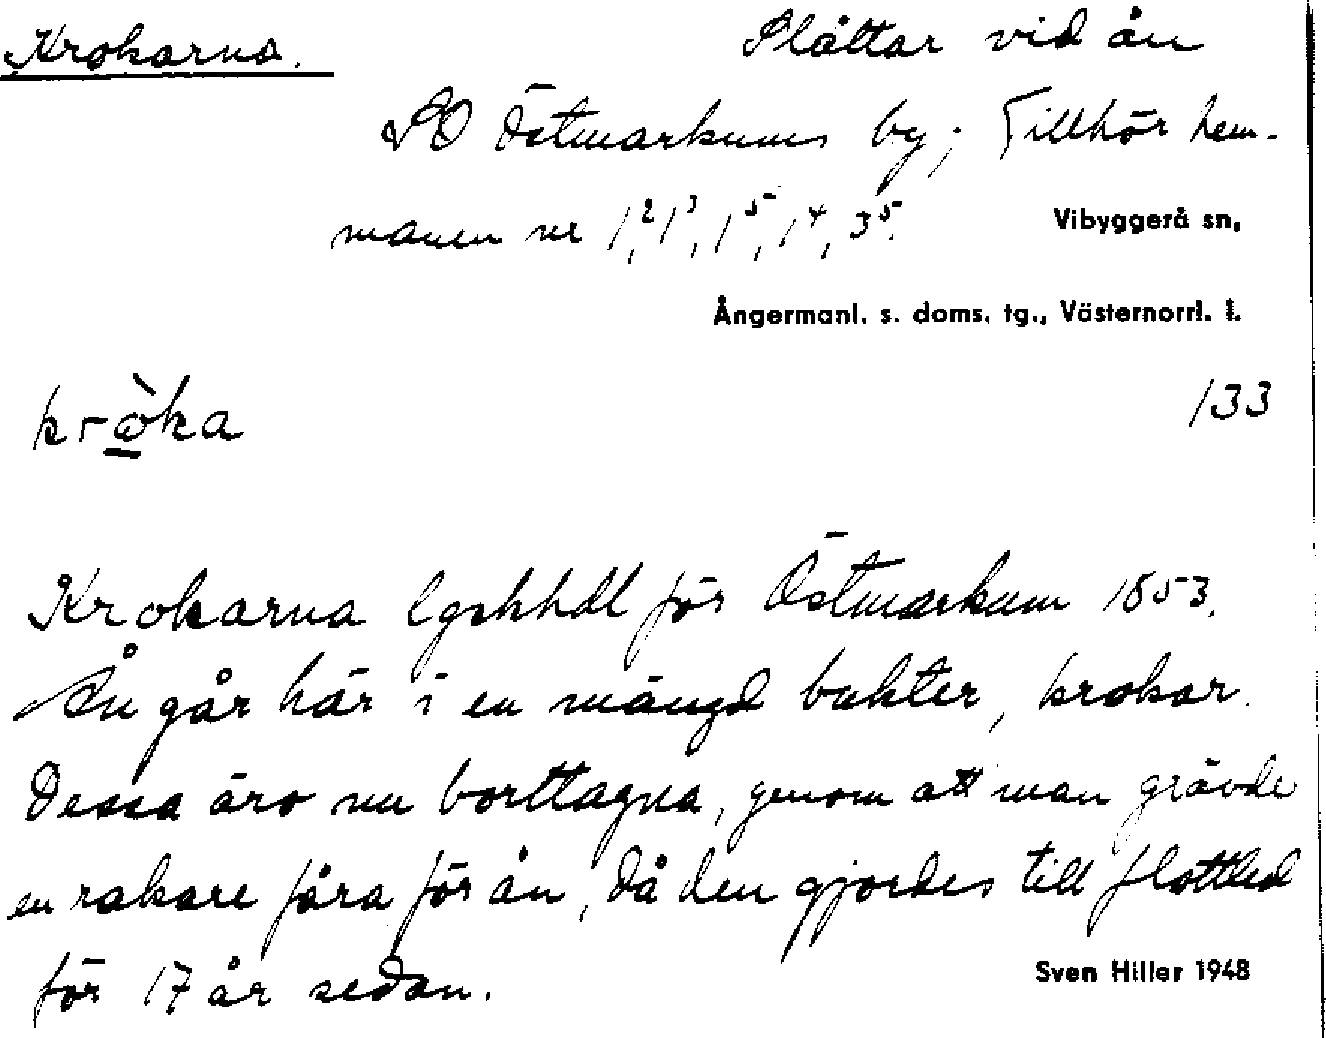 Krokarna. Slåttar vid ån
SO Östmarkums by; Tillhör hem-
manen nr 1², 1³, 1⁵, 1⁴, 3⁵. Vibyggerå sn,
Ångermanl. s. doms. tg., Västernorrl. l.
krò̲ka 133
Krokarna lgshhdl för Östmarkum 1853.
Ån går här i en mängd bukter, krokar.
Dessa äro nu borttagna, genom att man grävde
en rakare fåra för ån, då den gjordes till flottled
för 17 år sedan. Sven Hiller 1948